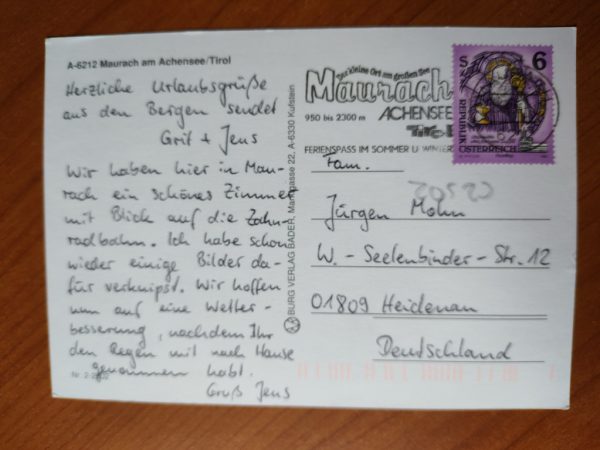 A-6212 Maurach am Achensee/Tirol
Herzliche Urlaubsgrüße
aus den Bergen sendet
Grit + Jens
Wir haben hier in Mau-
rach ein schönes Zimmer
mit Blick auf die Zahn-
radbahn. Ich habe schon
wieder einige Bilder da-
für verknipst. Wir hoffen
nun auf eine Wetter-
besserung, nachdem Ihr
den Regen mit nach Hause
genommen habt.
Gruß Jens
BURG VERLAG BADER, Marktgasse 22, A-6330 Kufstein
Der kleine Ort am großen See
Maurach
950 bis 2300 m ACHENSEE
TIROL
FERIENSPASS IM SOMMER U. WINTER
S 6
REPUBLIK
ÖSTERREICH
Fam.
20520
Jürgen Mohn
W.-Seelenbinder-Str. 12
01809 Heidenau
Deutschland